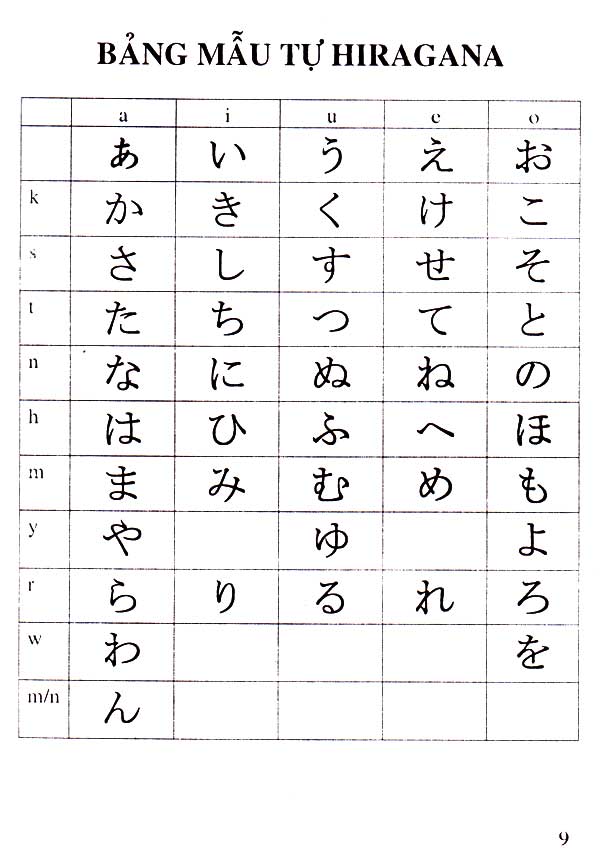 BẢNG MẪU TỰ HIRAGANA
a i u e o
あ い う え お
k か き く け こ
s さ し す せ そ
t た ち つ て と
n な に ぬ ね の
h は ひ ふ へ ほ
m ま み む め も
y や ゆ よ
r ら り る れ ろ
w わ を
m/n ん
9